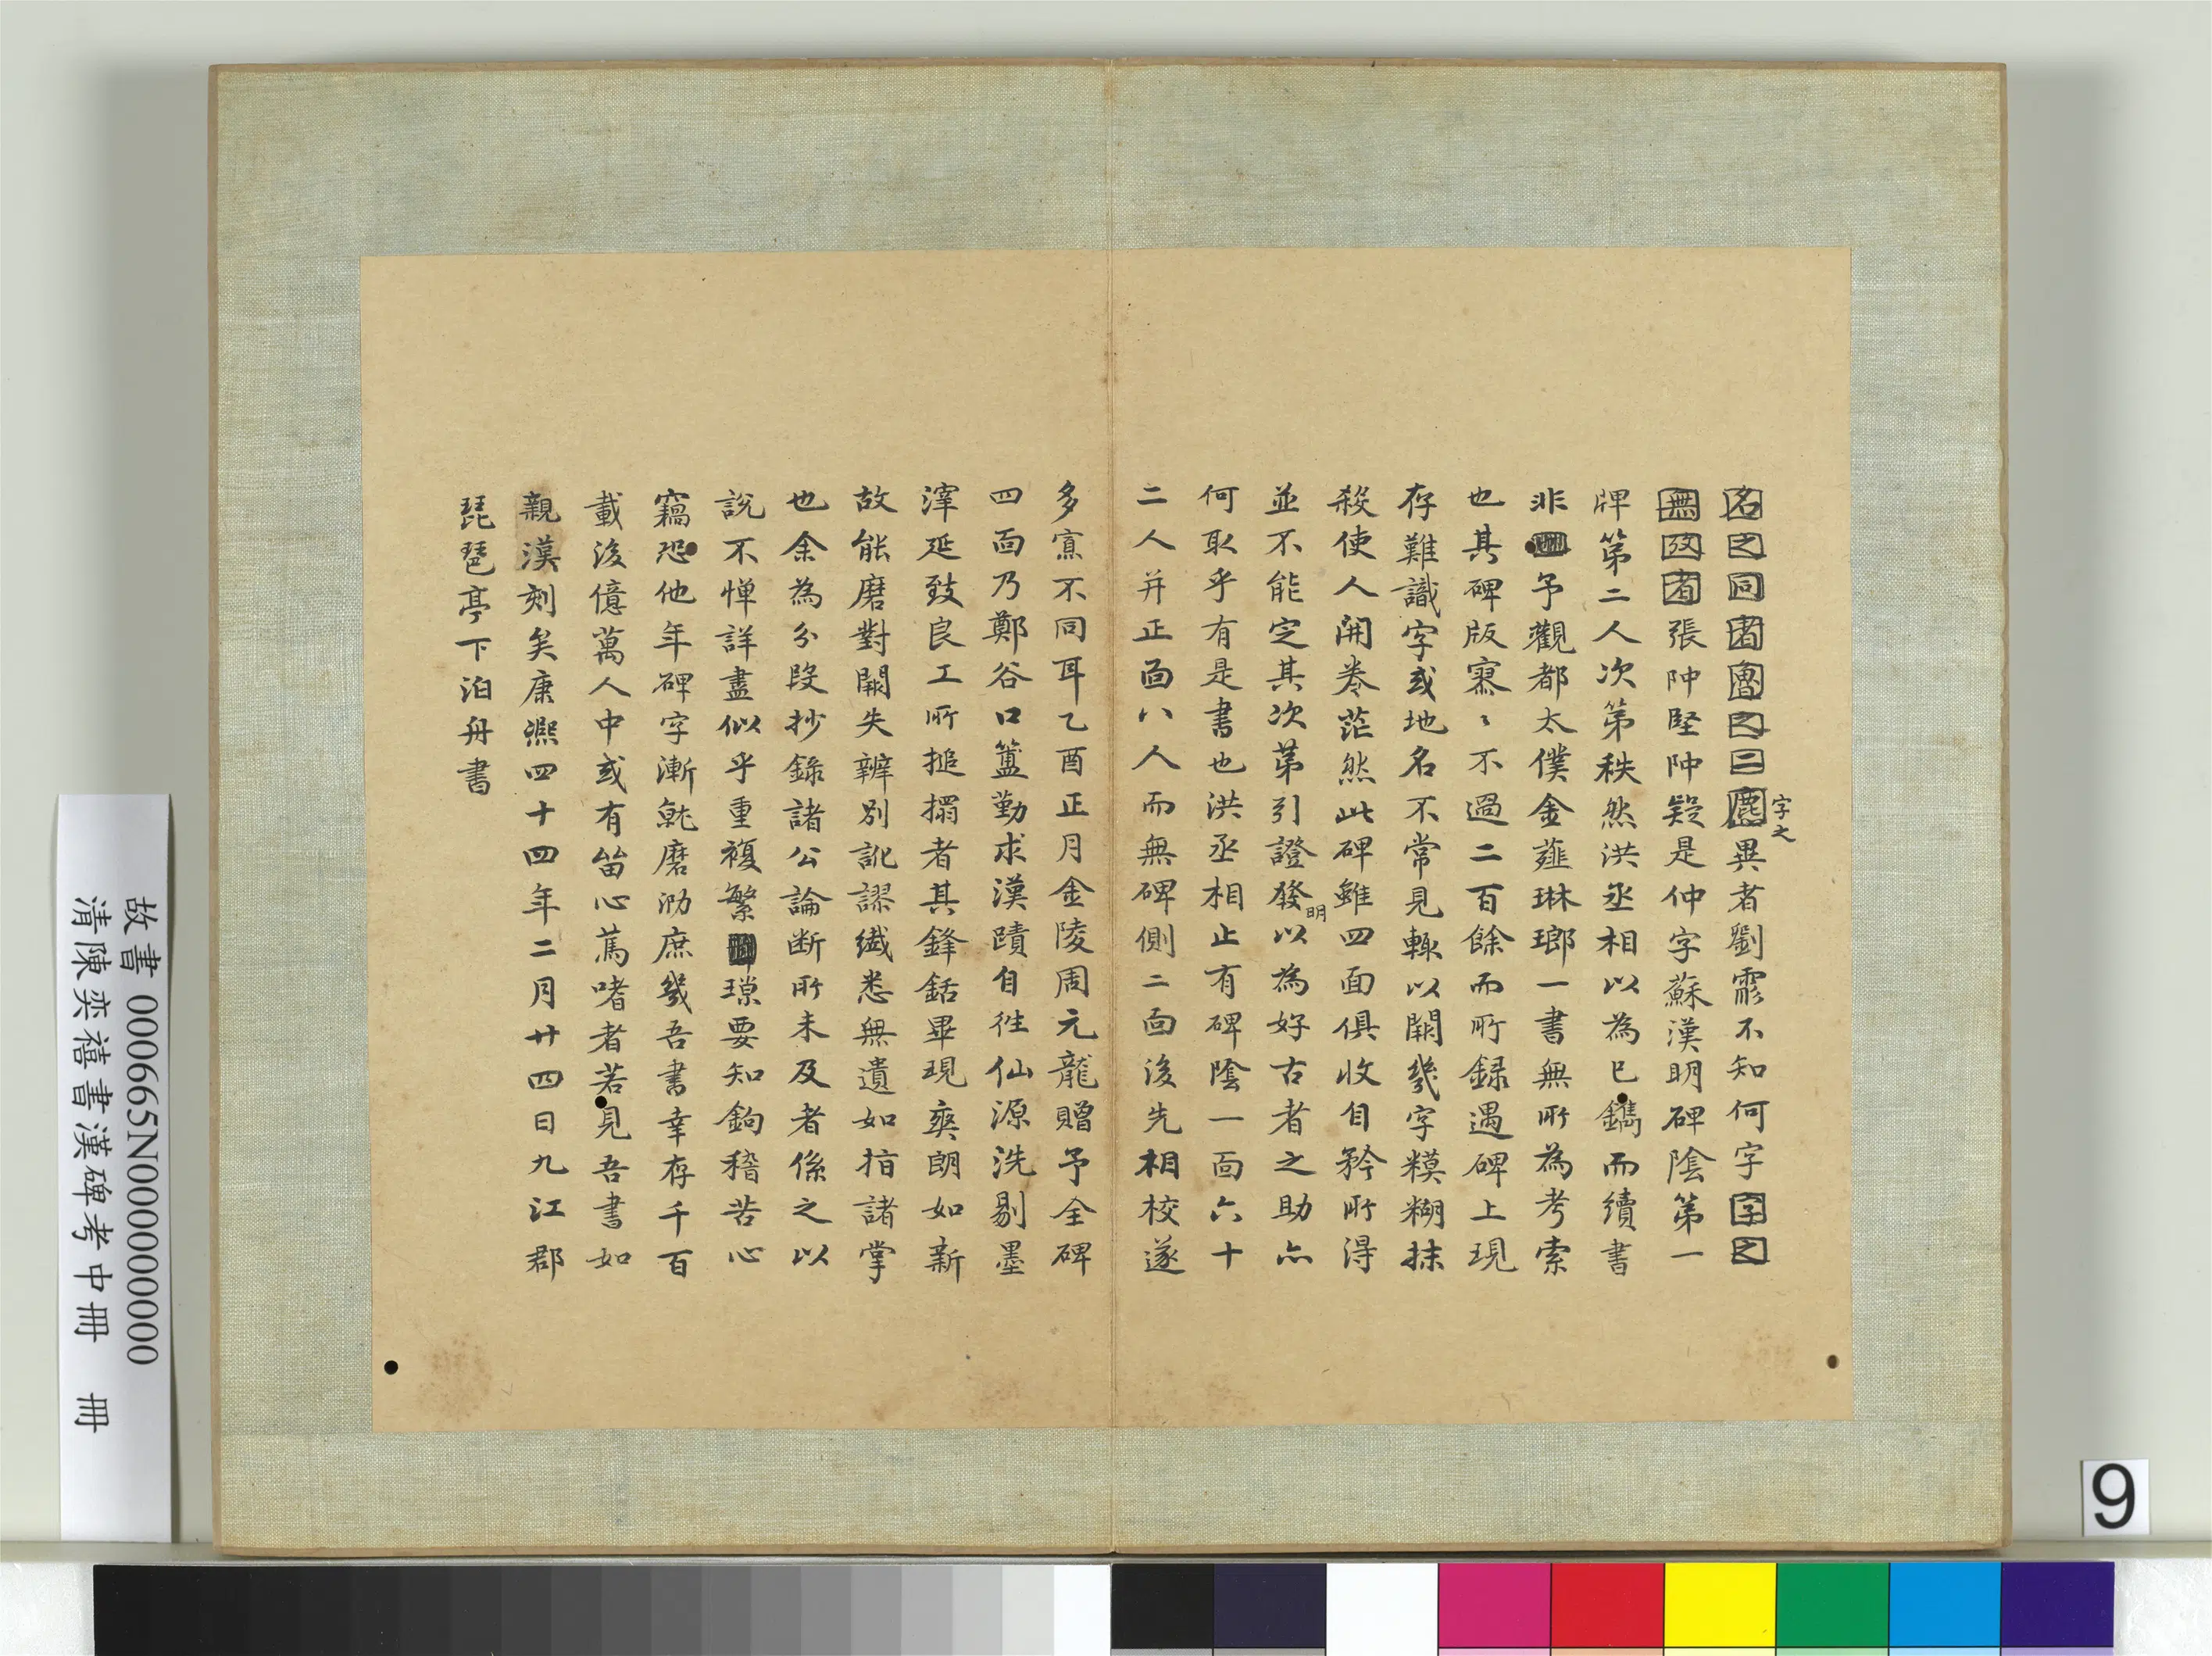 名之同者魯之二鹿字之異者劉霏不知何字字之
無攷者張阠堅阠疑是仲字蘇漢明碑陰第一
牌第二人次第秩然洪丞相以為已鐫而續書
非予觀都太僕金薤琳瑯一書無所為考索
也其碑版寥〻不過二百餘而所録遇碑上現
存難識字或地名不常見輒以闕幾字糢糊抹
殺使人開卷茫然此碑雖四面俱收自矜所得
並不能定其次第引證發明以為好古者之助亦
何取乎有是書也洪丞相止有碑陰一面六十
二人并正面八人而無碑側二面後先相校遂
多寡不同耳乙酉正月金陵周元龍贈予全碑
四面乃鄭谷口簠勤求漢蹟自徃仙源洗剔墨
滓延致良工所搥搨者其鋒銛畢現爽朗如新
故能磨對闕失辧别訛謬纎悉無遺如指諸掌
也余為分段抄錄諸公論断所未及者係之以
說不憚詳盡似乎重複繁瑣要知鉤稽苦心
竊恐他年碑字漸就磨泐庶幾吾書幸存千百
載後億萬人中或有留心篤嗜者若見吾書如
親漢刻矣康熙四十四年二月廿四日九江郡
琵琶亭下泊舟書
故書 000665N000000000
清陳奕禧書漢碑考中冊 冊
9